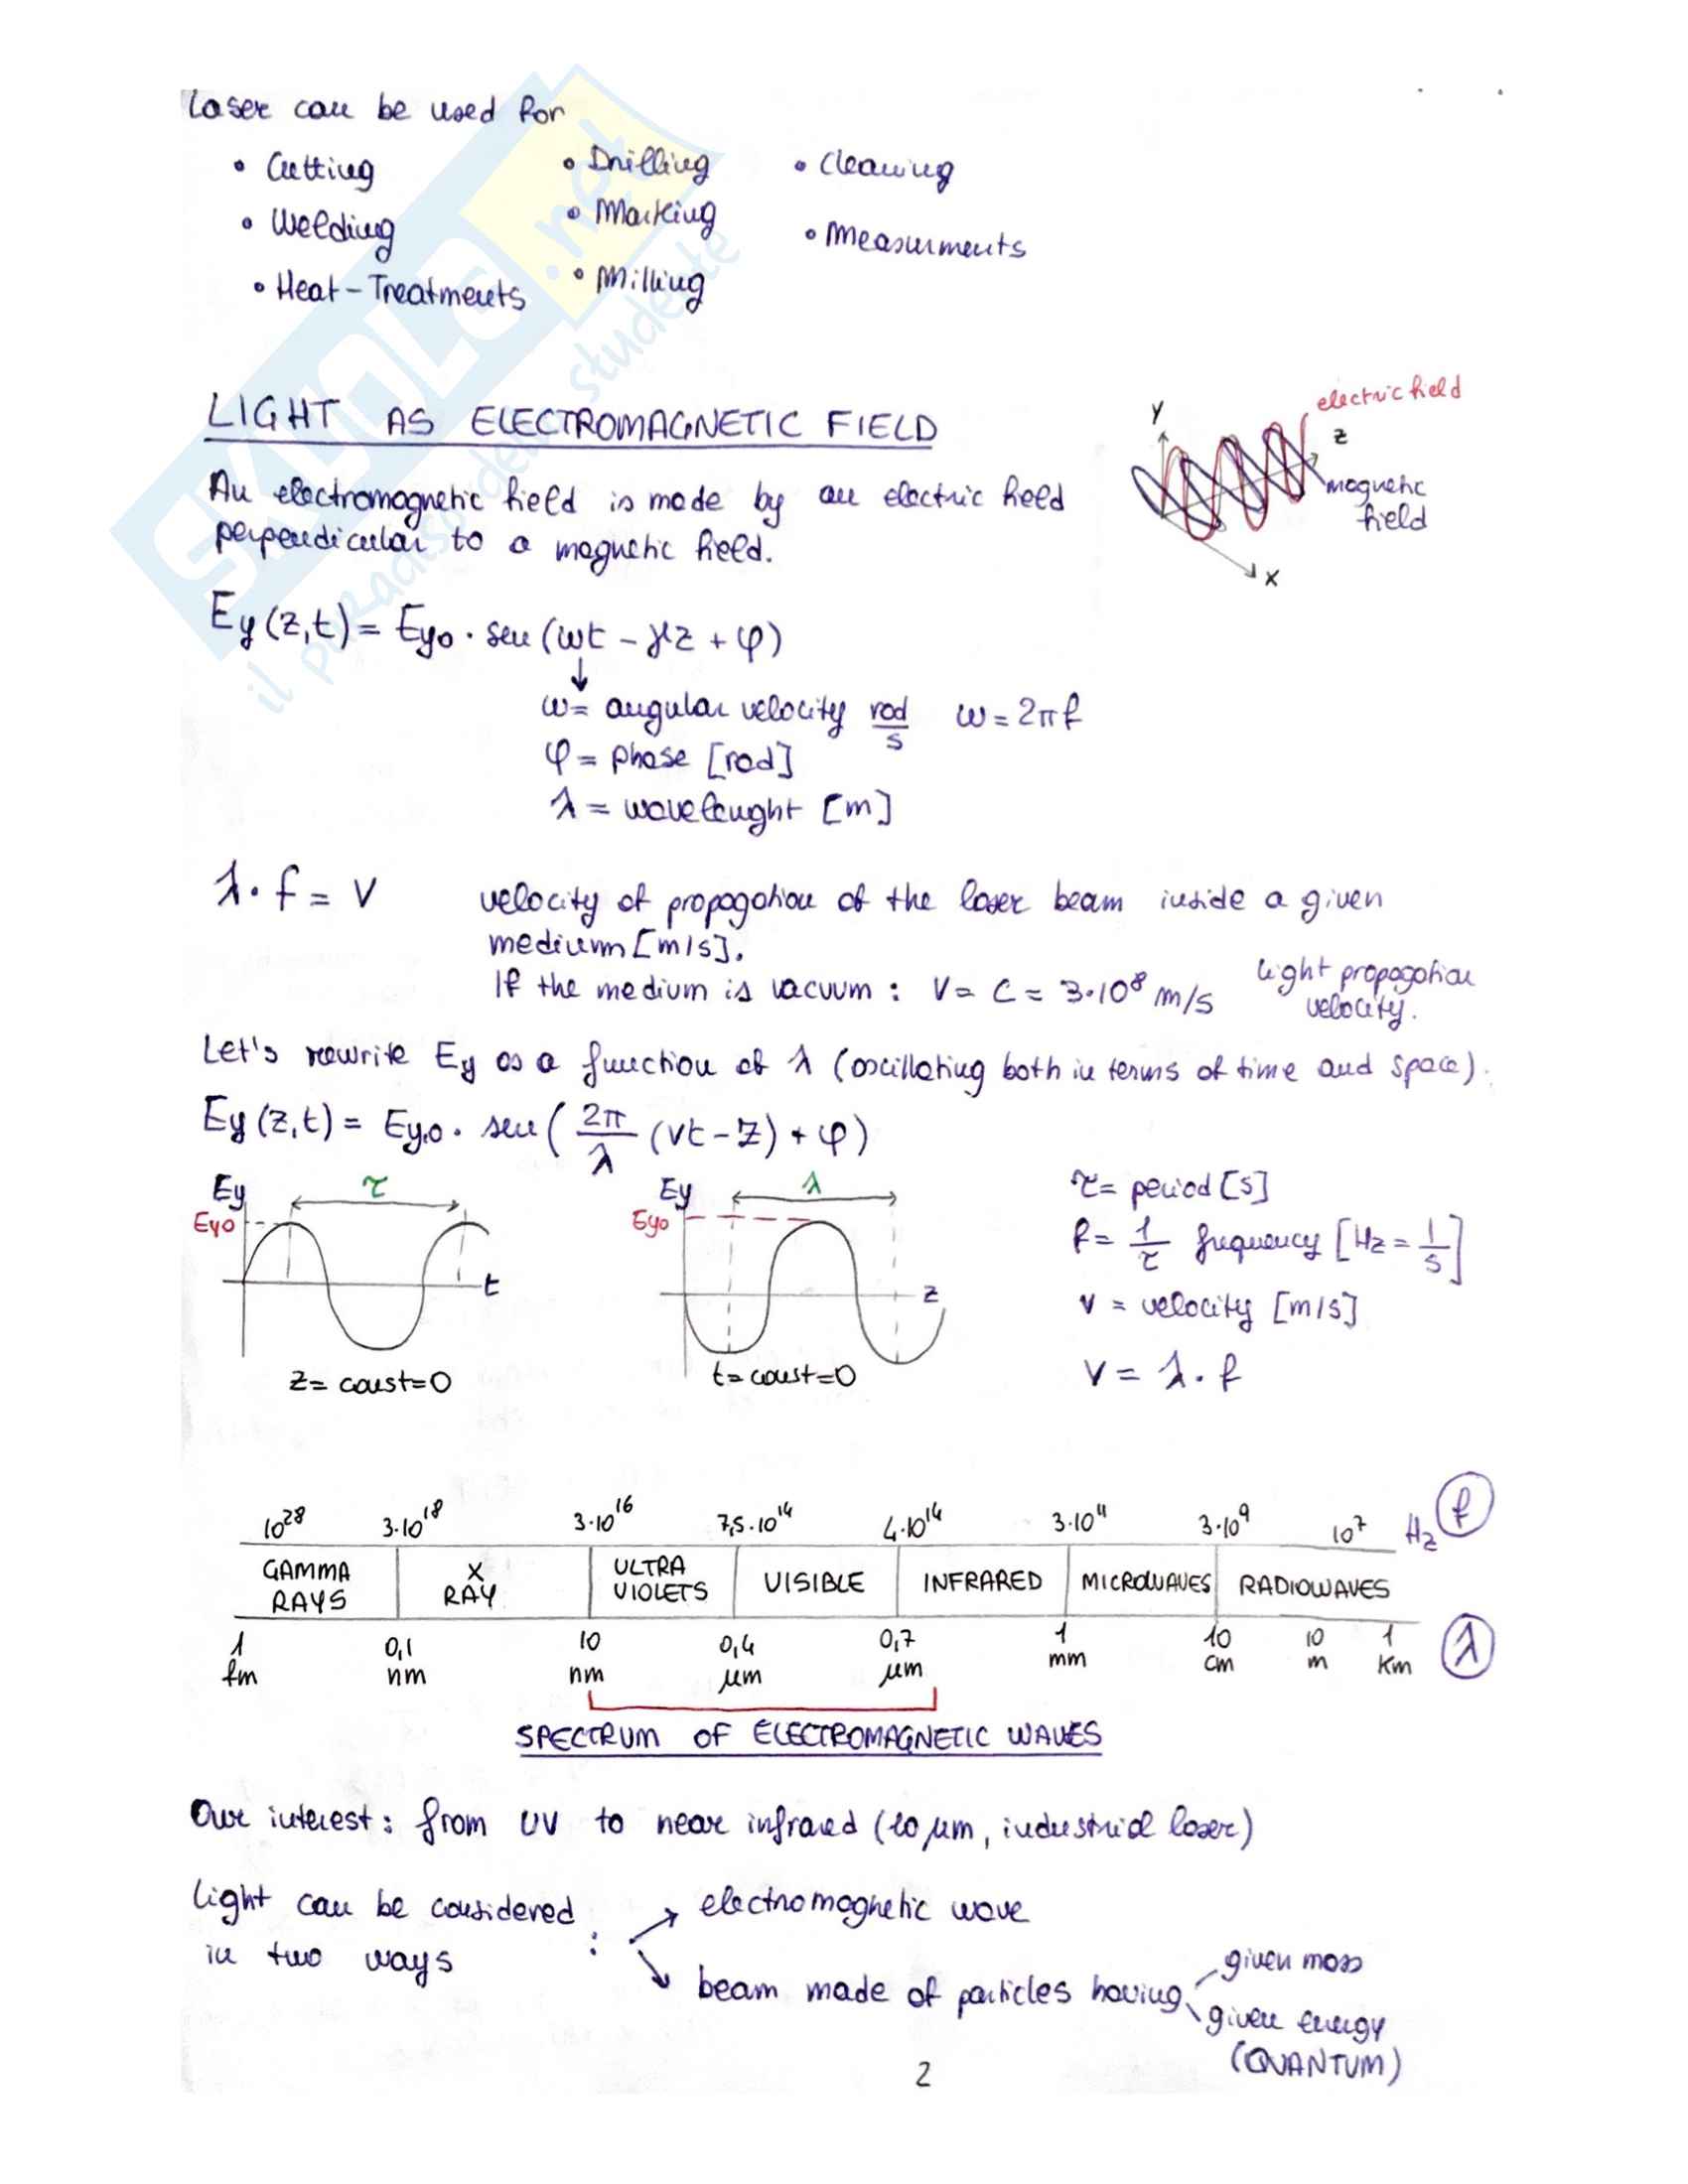 Laser can be used for
• Cutting • Drilling • Cleaning
• Welding • Marking • Measurments
• Heat-Treatments • Milling
SKUOLA.net
il paradiso dello studente
LIGHT AS ELECTROMAGNETIC FIELD
electric field
Y
z
magnetic field
x
An electromagnetic field is made by an electric field
perpendicular to a magnetic field.
Ey(z,t) = Eyo · sen(ωt - γz + φ)
ω = angular velocity rad/s ω = 2πf
φ = phase [rad]
λ = wavelenght [m]
λ · f = v velocity of propagation of the laser beam inside a given
medium [m/s].
If the medium is vacuum : v = c = 3·10⁸ m/s light propagation velocity.
Let's rewrite Ey as a function of λ (oscillating both in terms of time and space).
Ey(z,t) = Ey,o · sen(2π/λ (vt - z) + φ)
Ey τ
Eyo
t
z = const = 0
Ey λ
Eyo
z
t = const = 0
τ = period [s]
f = 1/τ frequency [Hz = 1/s]
v = velocity [m/s]
v = λ · f
10²⁸ 3·10¹⁸ 3·10¹⁶ 7,5·10¹⁴ 4·10¹⁴ 3·10¹¹ 3·10⁹ 10⁷ Hz f
GAMMA RAYS X RAY ULTRA VIOLETS VISIBLE INFRARED MICROWAVES RADIOWAVES
1 fm 0,1 nm 10 nm 0,4 μm 0,7 μm 1 mm 10 cm 10 m 1 Km λ
SPECTRUM OF ELECTROMAGNETIC WAVES
Our interest : from UV to near infrared (10 μm, industrial laser)
Light can be considered
in two ways :
electromagnetic wave
beam made of particles having
given mass
given energy
(QUANTUM)
2